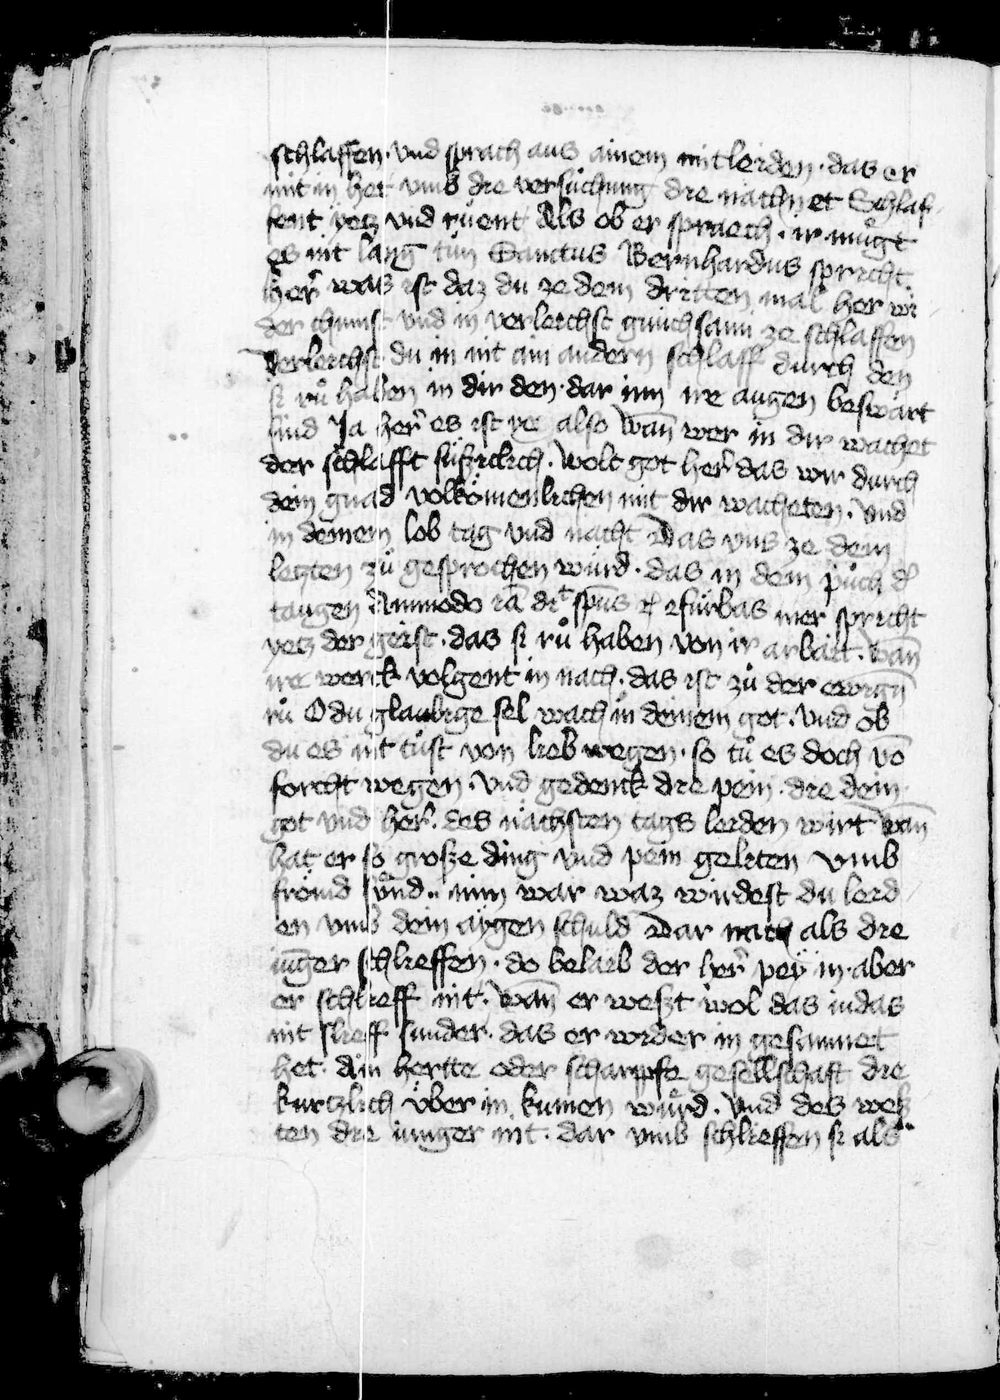 schlaffen · vnd sprach aus ainem mitleiden · das er
mit in het vmb die versůchung die nächnet Schlaf-
fent yetz vnd růent Als ob er spraech · ir můgt
es nit lang tůn Sanctus Bernhardus spricht
her̃ was ist daz du ze dem dritten mal her wi
der chumst vnd in verleichst gnuchsam ze schlaffen
Verleichst du in nit ain andern schlaff durch den
si rů haben in dir den · dar inn ire augen beswärt
sind Ja her̃ es ist ye also wañ wer in dir wachet
der schlafft süszicklich · wolt got her̃ das wir durch
dein gnad volkömenlichen mit dir wacheten · vnd
in deinem lob tag vnd nacht Das vns ze dem
letzten zů gesprochen würd · das in dem půch d̕
taugen Ammodo iā dīt sp̄us fürbas mer spricht
yetz der geist · das si rů haben von ir arbäit · wañ
ire werck volgent in nach · das ist zů der ewigñ
rů O du glaubige sel wach in deinem got · vnd ob
du es nit tůst von lieb wegen · so tů es doch vō
forcht wegen · vnd gedenck die pein · die dein
got vnd her̃ · des nächsten tags leiden wirt wañ
hat er so grosze ding vnd pein geliten vmb
frömd sünd · nim war waz wirdest du leid
en vmb dein aygen schuld Dar nach als die
iūger schlieffen · do belaib der her̃ peÿ in · aber
er schlieff nit · wañ er weszt wol das iudas
nit slieff sunder · das er wider in gesamnet
het · Ain hertte oder scharpfe gesellschaft die
kurtzlich über in kumen würd · vnd des wesz
ten die iunger nit · dar vmb schlieffen si als